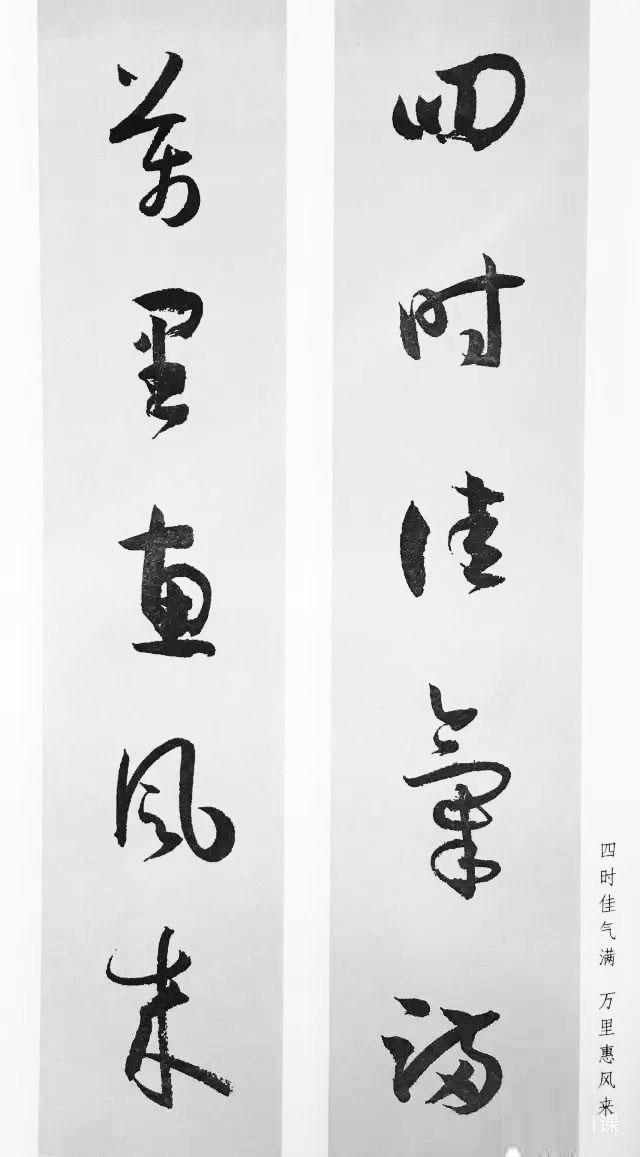 四时佳氣满
萬里惠风来
四时佳气满 万里惠风来
课